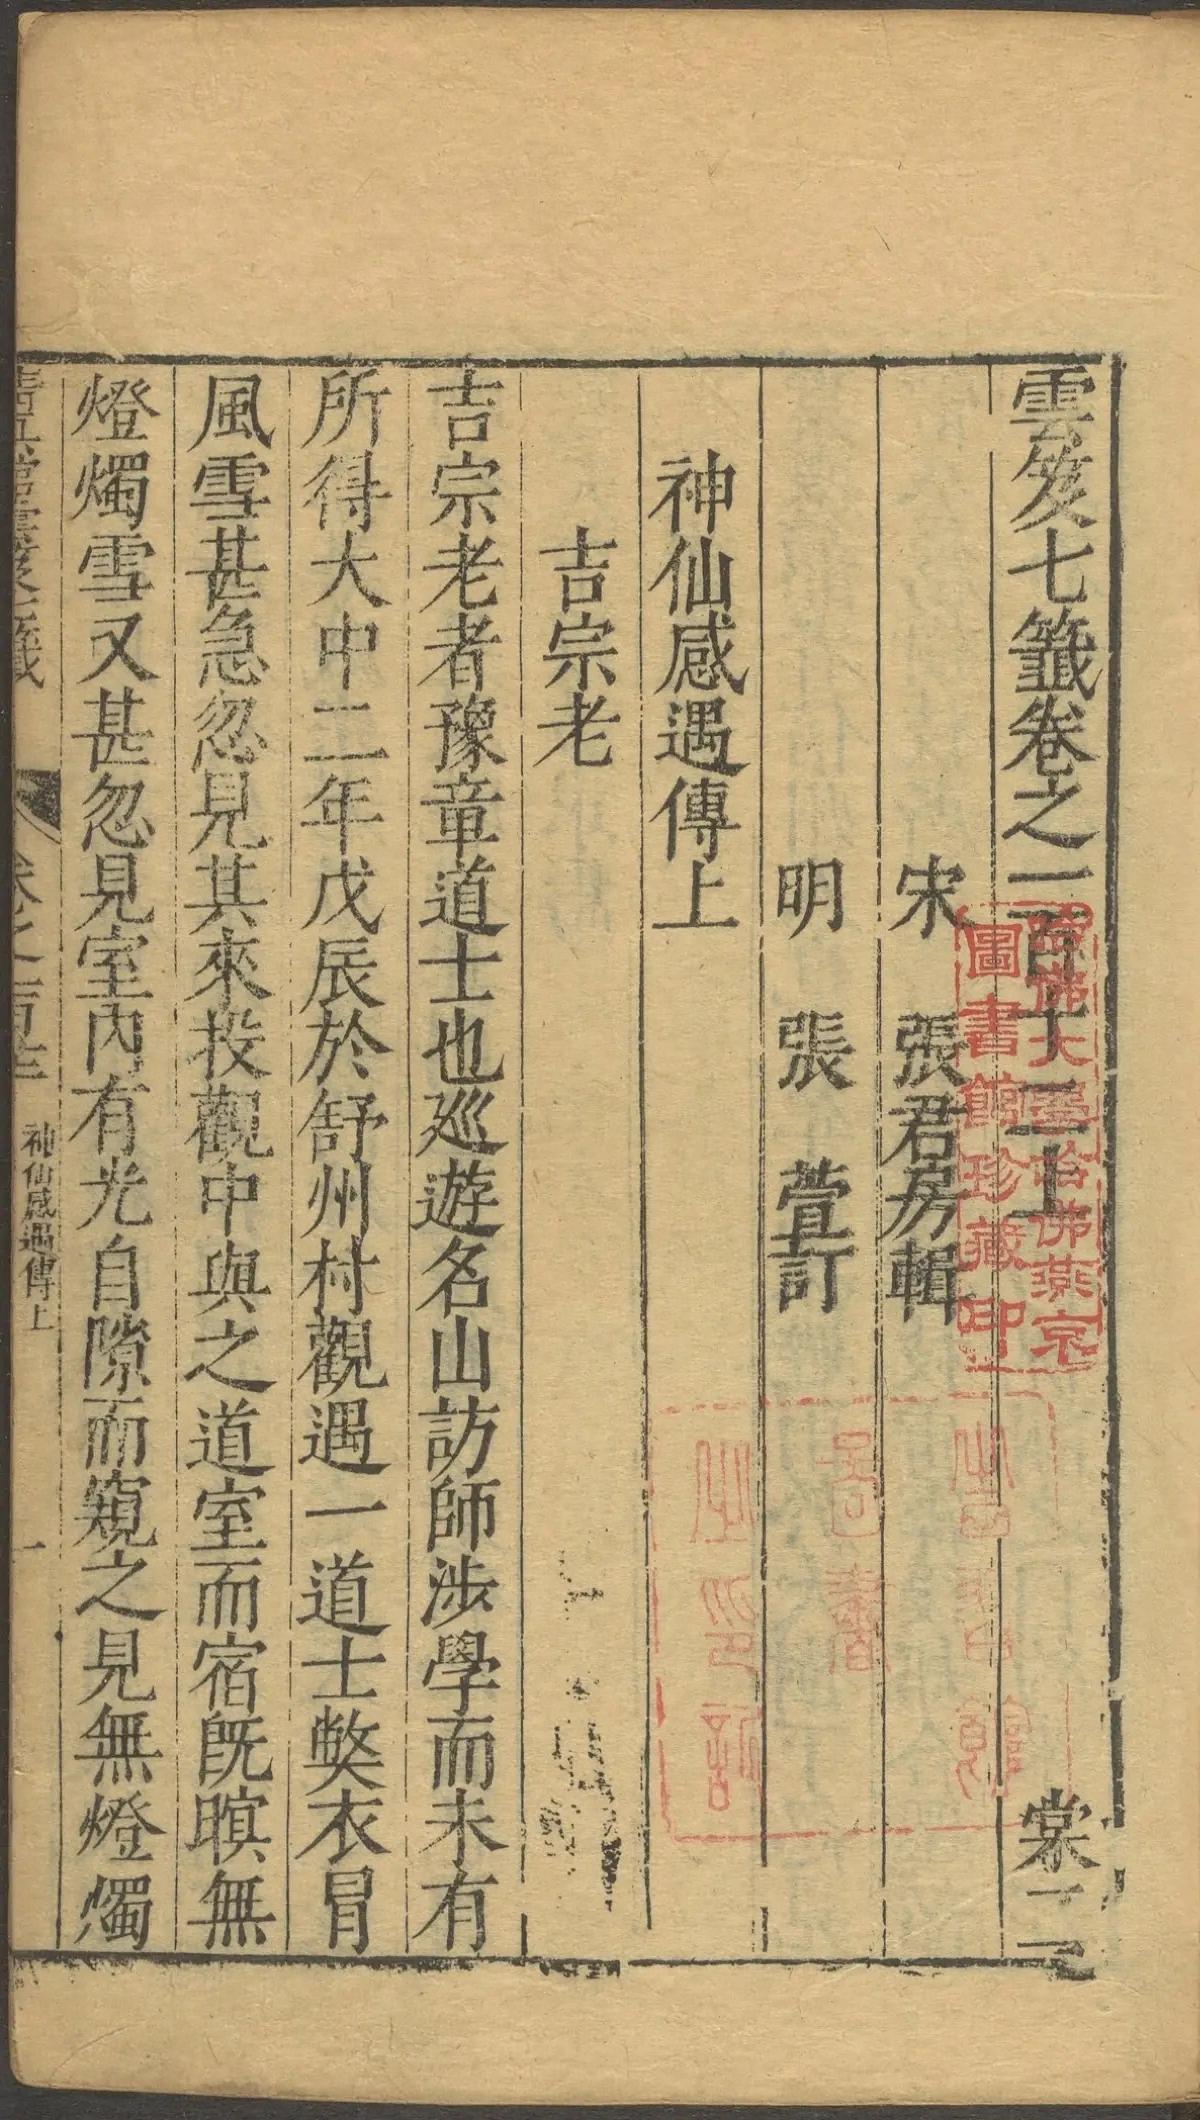 雲笈七籖卷之一百十二上 棠
宋 張君房輯
明 張 萱訂
神仙感遇傳上
吉宗老
吉宗老者豫章道士也廵遊名山訪師涉學而未有
所得大中二年戊辰於舒州村觀遇一道士獘衣冒
風雪甚急忽見其來投觀中與之道室而宿旣暝無
燈燭雪又甚忽見室內有光自隙而窺之見無燈燭
雲笈七籖 卷之一百十二 神仙感遇傳上 一
哈佛大學哈佛燕京
圖書館珍藏印